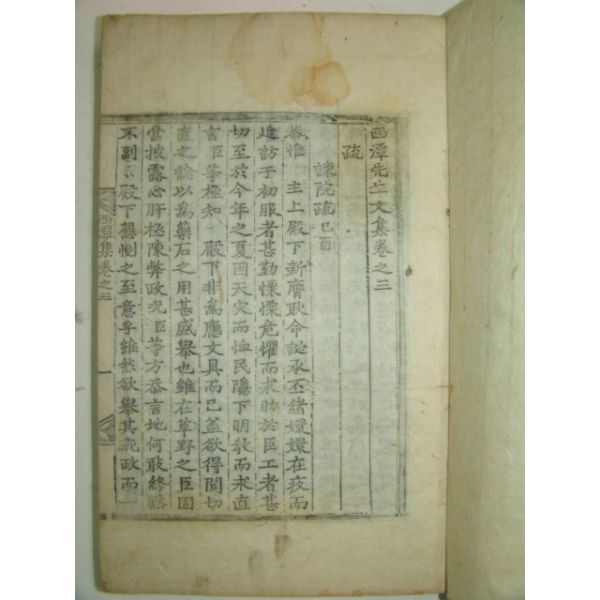 西潭先生文集卷之三
疏
諫院疏 己酉
恭惟 主上殿下新膺耿命誕承丕緖嬛嬛在疚而
追訪于初服者甚勤慄慄危懼而求助於臣工者甚
切至於今年之夏因天灾而恤民隱下明敎而求直
言臣等極知 殿下非爲應文具而已盖欲得聞切
直之論以爲藥石之用甚盛擧也雖在草野之臣固
當披露心肝極陳弊政况臣等方忝言地何敢終默
不副 殿下懇惻之至意乎雖然欲擧其疵政而一
西潭集卷之三